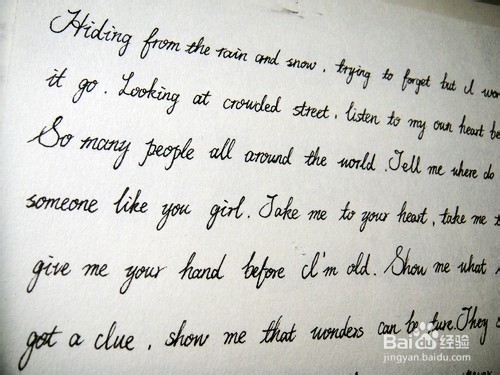 Hiding from the rain and snow, trying to forget but I won
it go. Looking at crowded street, listen to my own heart be
So many people all around the world. Tell me where do
someone like you girl. Take me to your heart, take me t
give me your hand before I'm old. Show me what
got a clue, show me that wonders can be ture. They
Baidu 经验
jingyan.baidu.com